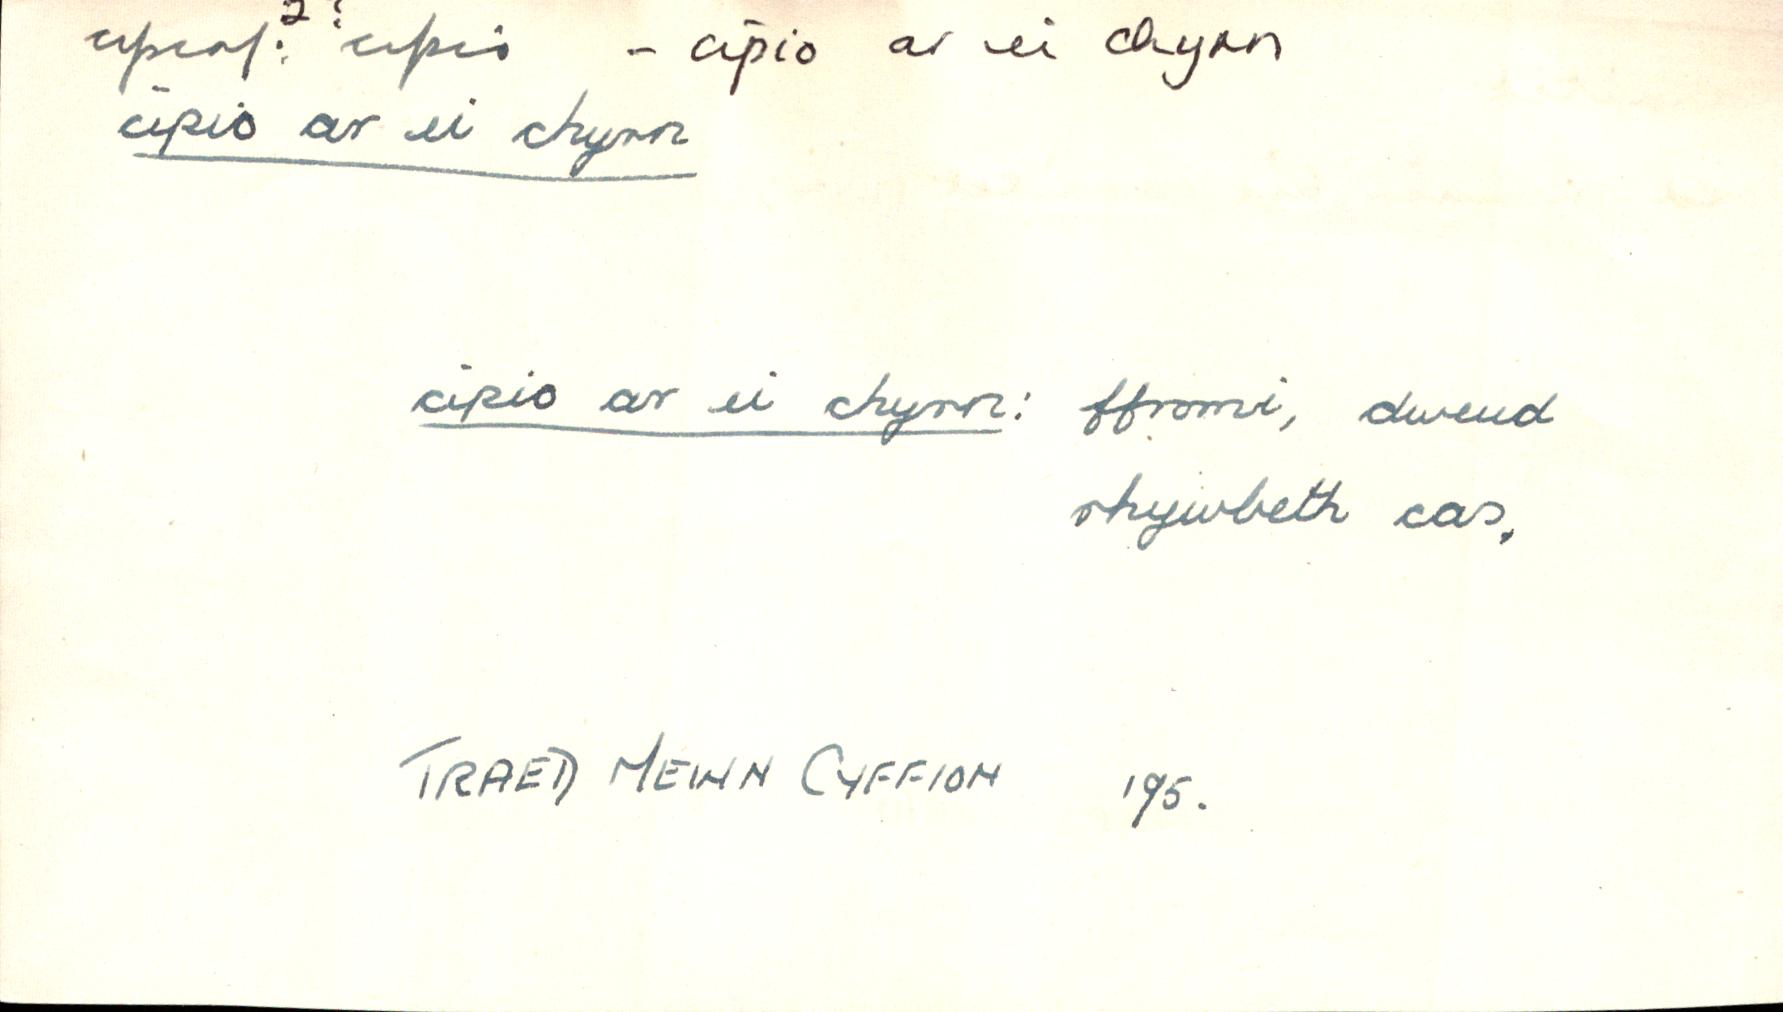 cipiaf:2? cipio – cipio ar ei chyrn
cipio ar ei chyrn
cipio ar ei chyrn: ffromi, dweud
rhywbeth cas.
TRAED MEWN CYFFION 195.